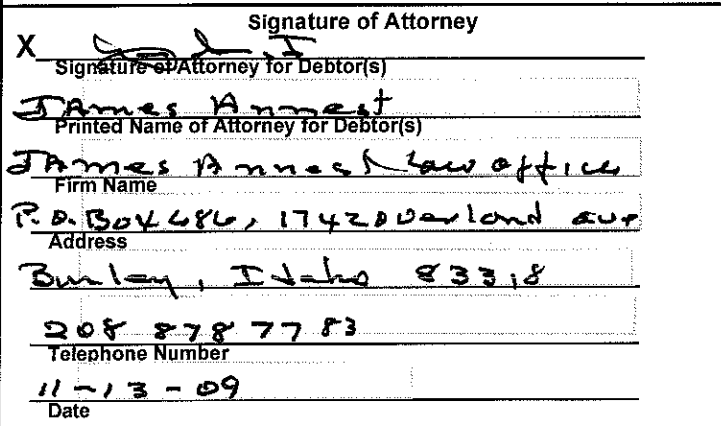 Signature of Attorney
X
Signature of Attorney for Debtor(s)
JAmes Annest
Printed Name of Attorney for Debtor(s)
JAmes Annest Law office
Firm Name
P.O. Box 486, 1742 Overland ave
Address
Burley, Idaho 83318
208 878 7783
Telephone Number
11-13-09
Date